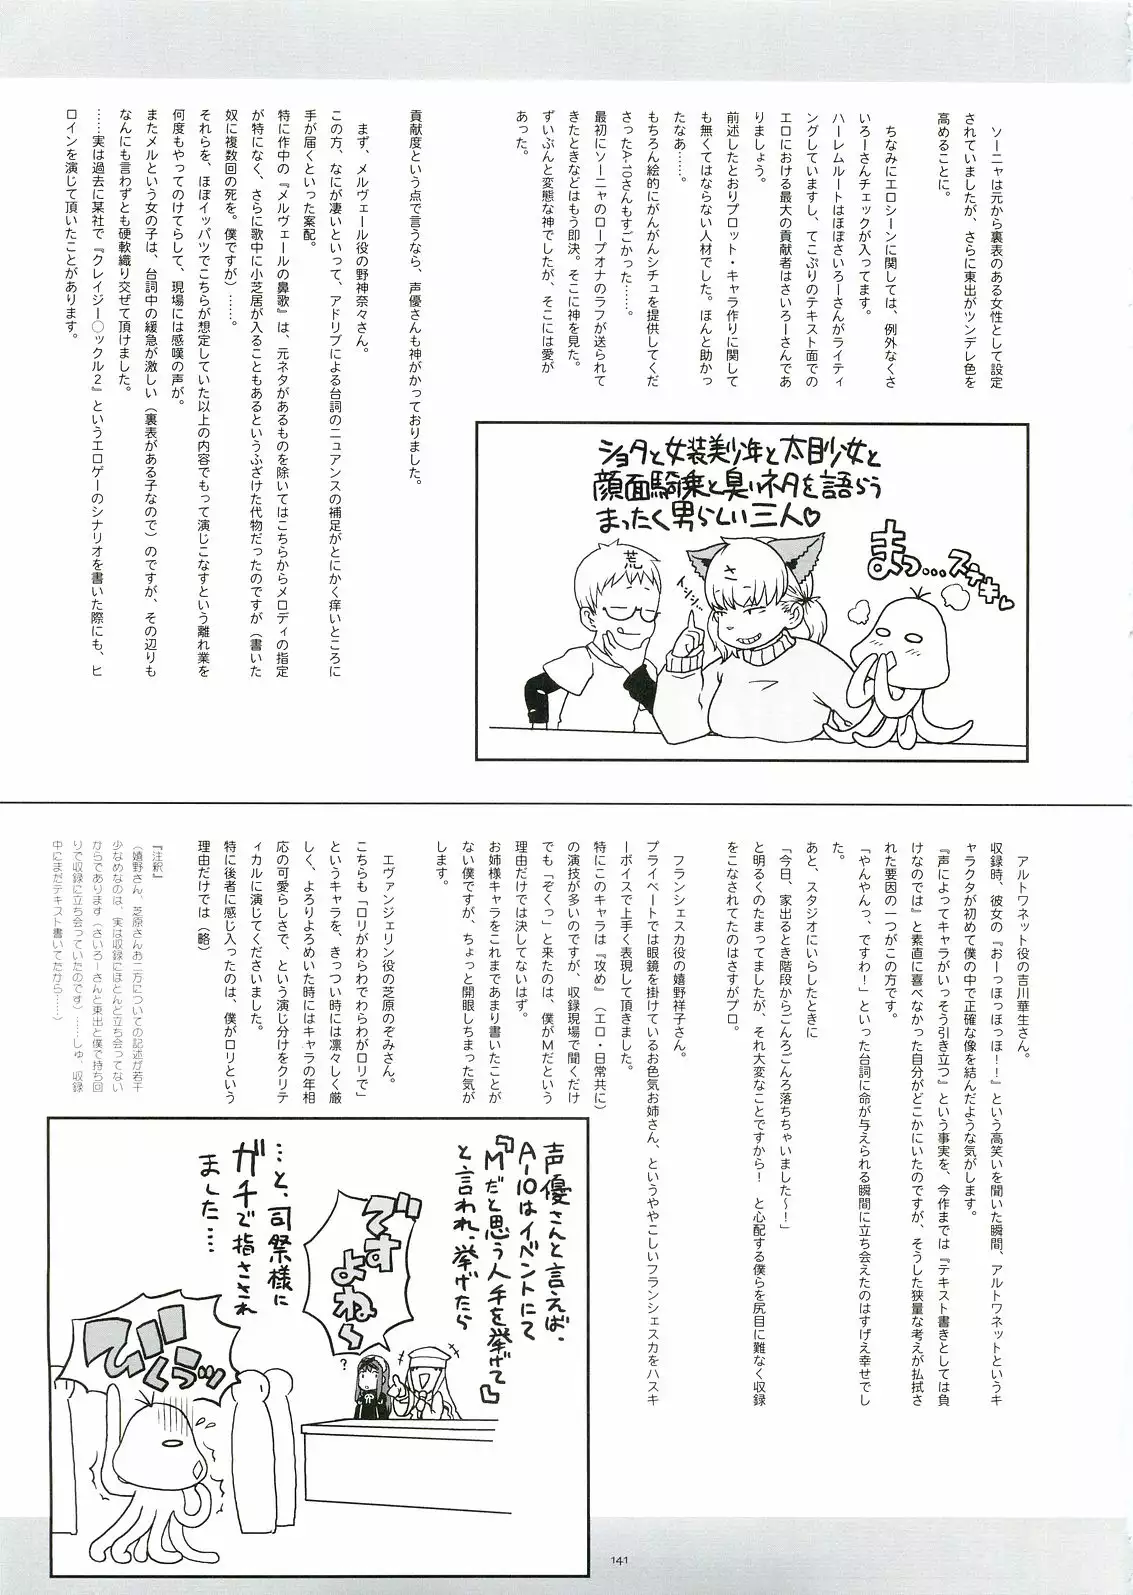 ソーニャは元から裏表のある女性として設定
されていましたが、さらに東出がツンデレ色を
高めることに。
ちなみにエロシーンに関しては、例外なくさ
いろーさんチェックが入ってます。
ハーレムルートはほぼさいろーさんがライティ
ングしていますし、てこぷりのテキスト面での
エロにおける最大の貢献者はさいろーさんであ
りましょう。
前述したとおりプロット・キャラ作りに関して
も無くてはならない人材でした。ほんと助かっ
たなあ……。
もちろん絵的にがんがんシチュを提供してくだ
さったA-10さんもすごかった……。
最初にソーニャのロープオナのラフが送られて
きたときなどはもう即決。そこに神を見た。
ずいぶんと変態な神でしたが、そこには愛が
あった。
貢献度という点で言うなら、声優さんも神がかっておりました。
まず、メルヴェール役の野神奈々さん。
この方、なにが凄いといって、アドリブによる台詞のニュアンスの補足がとにかく痒いところに
手が届くといった案配。
特に作中の『メルヴェールの鼻歌』は、元ネタがあるものを除いてはこちらからメロディの指定
が特になく、さらに歌中に小芝居が入ることもあるというふざけた代物だったのですが（書いた
奴に複数回の死を。僕ですが）……。
それらを、ほぼイッパツでこちらが想定していた以上の内容でもって演じこなすという離れ業を
何度もやってのけてらして、現場には感嘆の声が。
またメルという女の子は、台詞中の緩急が激しい（裏表がある子なので）のですが、その辺りも
なんにも言わずとも硬軟織り交ぜて頂けました。
……実は過去に某社で『クレイジー◯ックル２』というエロゲーのシナリオを書いた際にも、ヒ
ロインを演じて頂いたことがあります。
ショタと女装美少年と太目少女と
顔面騎乗と臭いネタを語らう
まったく男らしい三人♡
荒
イシシシ
まっ…ステキ♡
アルトワネット役の吉川華生さん。
収録時、彼女の『おーっほっほっほ！！』という高笑いを聞いた瞬間、アルトワネットというキ
ャラクタが初めて僕の中で正確な像を結んだような気がします。
『声によってキャラがいっそう引き立つ』という事実を、今作までは『テキスト書きとしては負
けなのでは』と素直に喜べなかった自分がどこかにいたのですが、そうした狭量な考えが払拭さ
れた要因の一つがこの方です。
「やんやんっ、ですわ！」といった台詞に命が与えられる瞬間に立ち会えたのはすげえ幸せでし
た。
あと、スタジオにいらしたときに
「今日、家出るとき階段からごんろごんろ落ちちゃいました〜！」
と明るくのたまってましたが、それ大変なことですから！　と心配する僕らを尻目に難なく収録
をこなされてたのはさすがプロ。
フランシェスカ役の嬉野祥子さん。
プライベートでは眼鏡を掛けているお色気お姉さん、というややこしいフランシェスカをハスキ
ーボイスで上手く表現して頂きました。
特にこのキャラは『攻め』（エロ・日常共に）
の演技が多いのですが、収録現場で聞くだけ
でも「ぞくっ」と来たのは、僕がＭだという
理由だけでは決してないはず。
お姉様キャラをこれまであまり書いたことが
ない僕ですが、ちょっと開眼しちまった気が
します。
エヴァンジェリン役の芝原のぞみさん。
こちらも「ロリがわらわでわらわがロリで」
というキャラを、きっつい時には凛々しく厳
しく、よろりよろめいた時にはキャラの年相
応の可愛らしさで、という演じ分けをクリテ
ィカルに演じてくださいました。
特に後者に感じ入ったのは、僕がロリという
理由だけでは（略）
『注釈』
（嬉野さん、芝原さんお二方についての記述が若干
少なめなのは、実は収録にほとんど立ち会ってない
からであります（さいろーさんと東出と僕で持ち回
りで収録に立ち会っていたのです）……しゅ、収録
中にまだテキスト書いてたから……）
声優さんと言えば、
A-10はイベントにて
『Mだと思う人手を挙げて』
と言われ、挙げたら
…と、司祭様に
ガチで指さされ
ました…
ですよねー
?
びくうッ
141